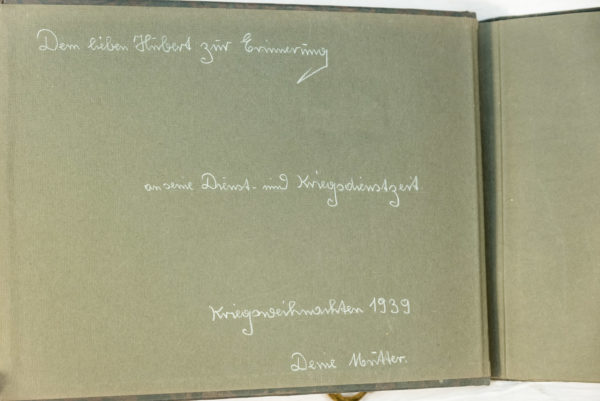 Dem lieben Hubert zur Erinnerung
an seine Dienst- und Kriegsdienstzeit.
Kriegsweihnachten 1939
Deine Mutter.